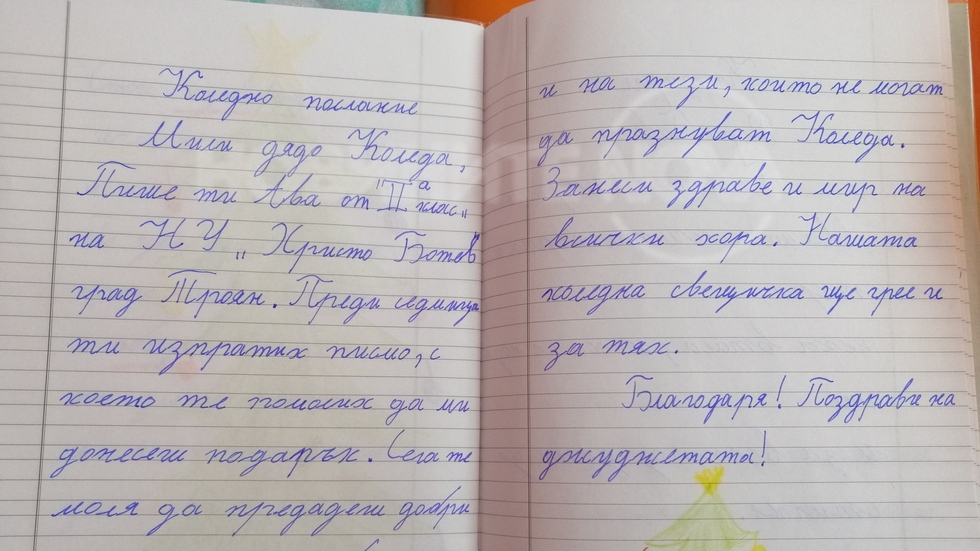 Коледно послание
Мили дядо Коледа,
Пише ти Ава от "II а клас"
на НУ „Христо Ботев"
град Троян. Преди седмица
ти изпратих писмо, с
което те помолих да ми
донесеш подарък. Сега те
моля да предадеш добри
и на тези, които не могат
да празнуват Коледа.
Занеси здраве и мир на
всички хора. Нашата
коледна свещичка ще грее и
за тях.
Благодаря! Поздрави на
джуджетата!